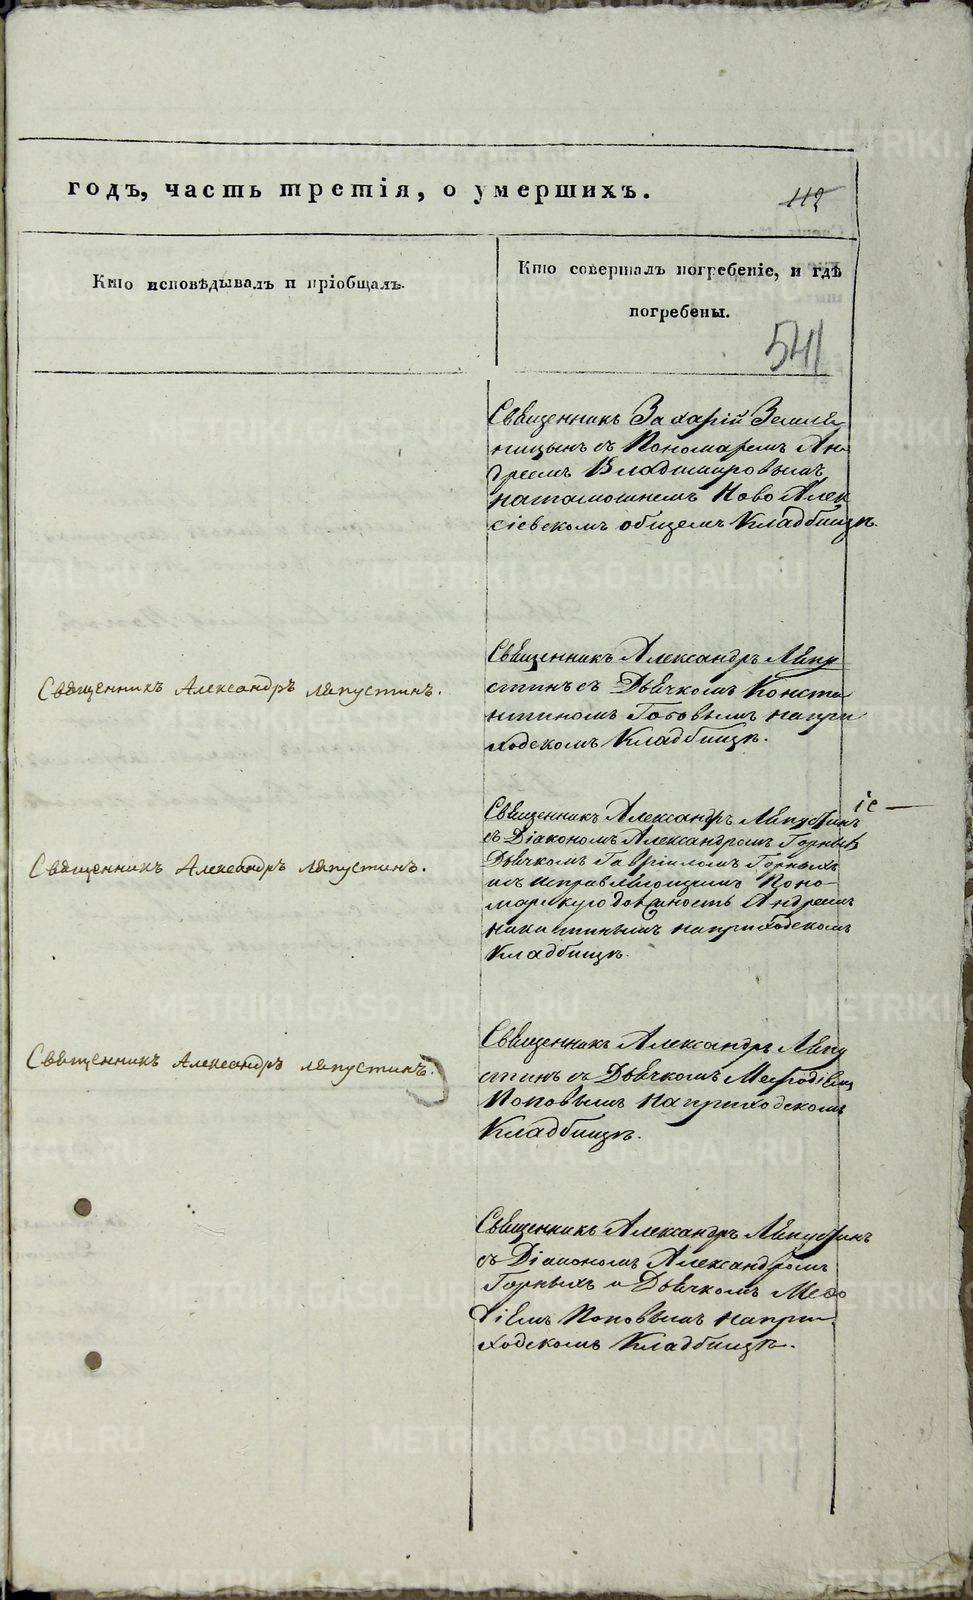 годъ, часть третія, о умершихъ.
112
Кто исповѣдывалъ и пріобщалъ.
Кто совершалъ погребеніе, и гдѣ
погребены.
541
Священникъ Захарій
съ Пономаремъ Ан
дреемъ Владимировымъ
натамошнемъ Ново Алек
сіевскомъ общемъ Кладбищѣ.
Священникъ Александръ Ляпустинъ.
Священникъ Александръ Ляпу
стинъ съ Дьячкомъ Конста
нтиномъ напри
ходскомъ Кладбищѣ.
іе —
Священникъ Александръ Ляпустинъ.
Священникъ Александръ Ляпустинъ
съ Діакономъ Александромъ Горныхъ
Дьячкомъ Гавріиломъ Горныхъ
исправляющимъ Поно-
марскую должность Андреемъ
Никитинымъ наприходскомъ
Кладбищѣ.
Священникъ Александръ Ляпустинъ.
Священникъ Александръ Ляпу
стинъ съ Дьячкомъ Меѳодіемъ
Поповымъ наприходскомъ
Кладбищѣ.
Священникъ Александръ Ляпустинъ
съ Діакономъ Александромъ
Горныхъ и Дьячкомъ Меѳо
діемъ Поповымъ напри-
ходскомъ Кладбищѣ.
METRIKI.GASO-URAL.RU